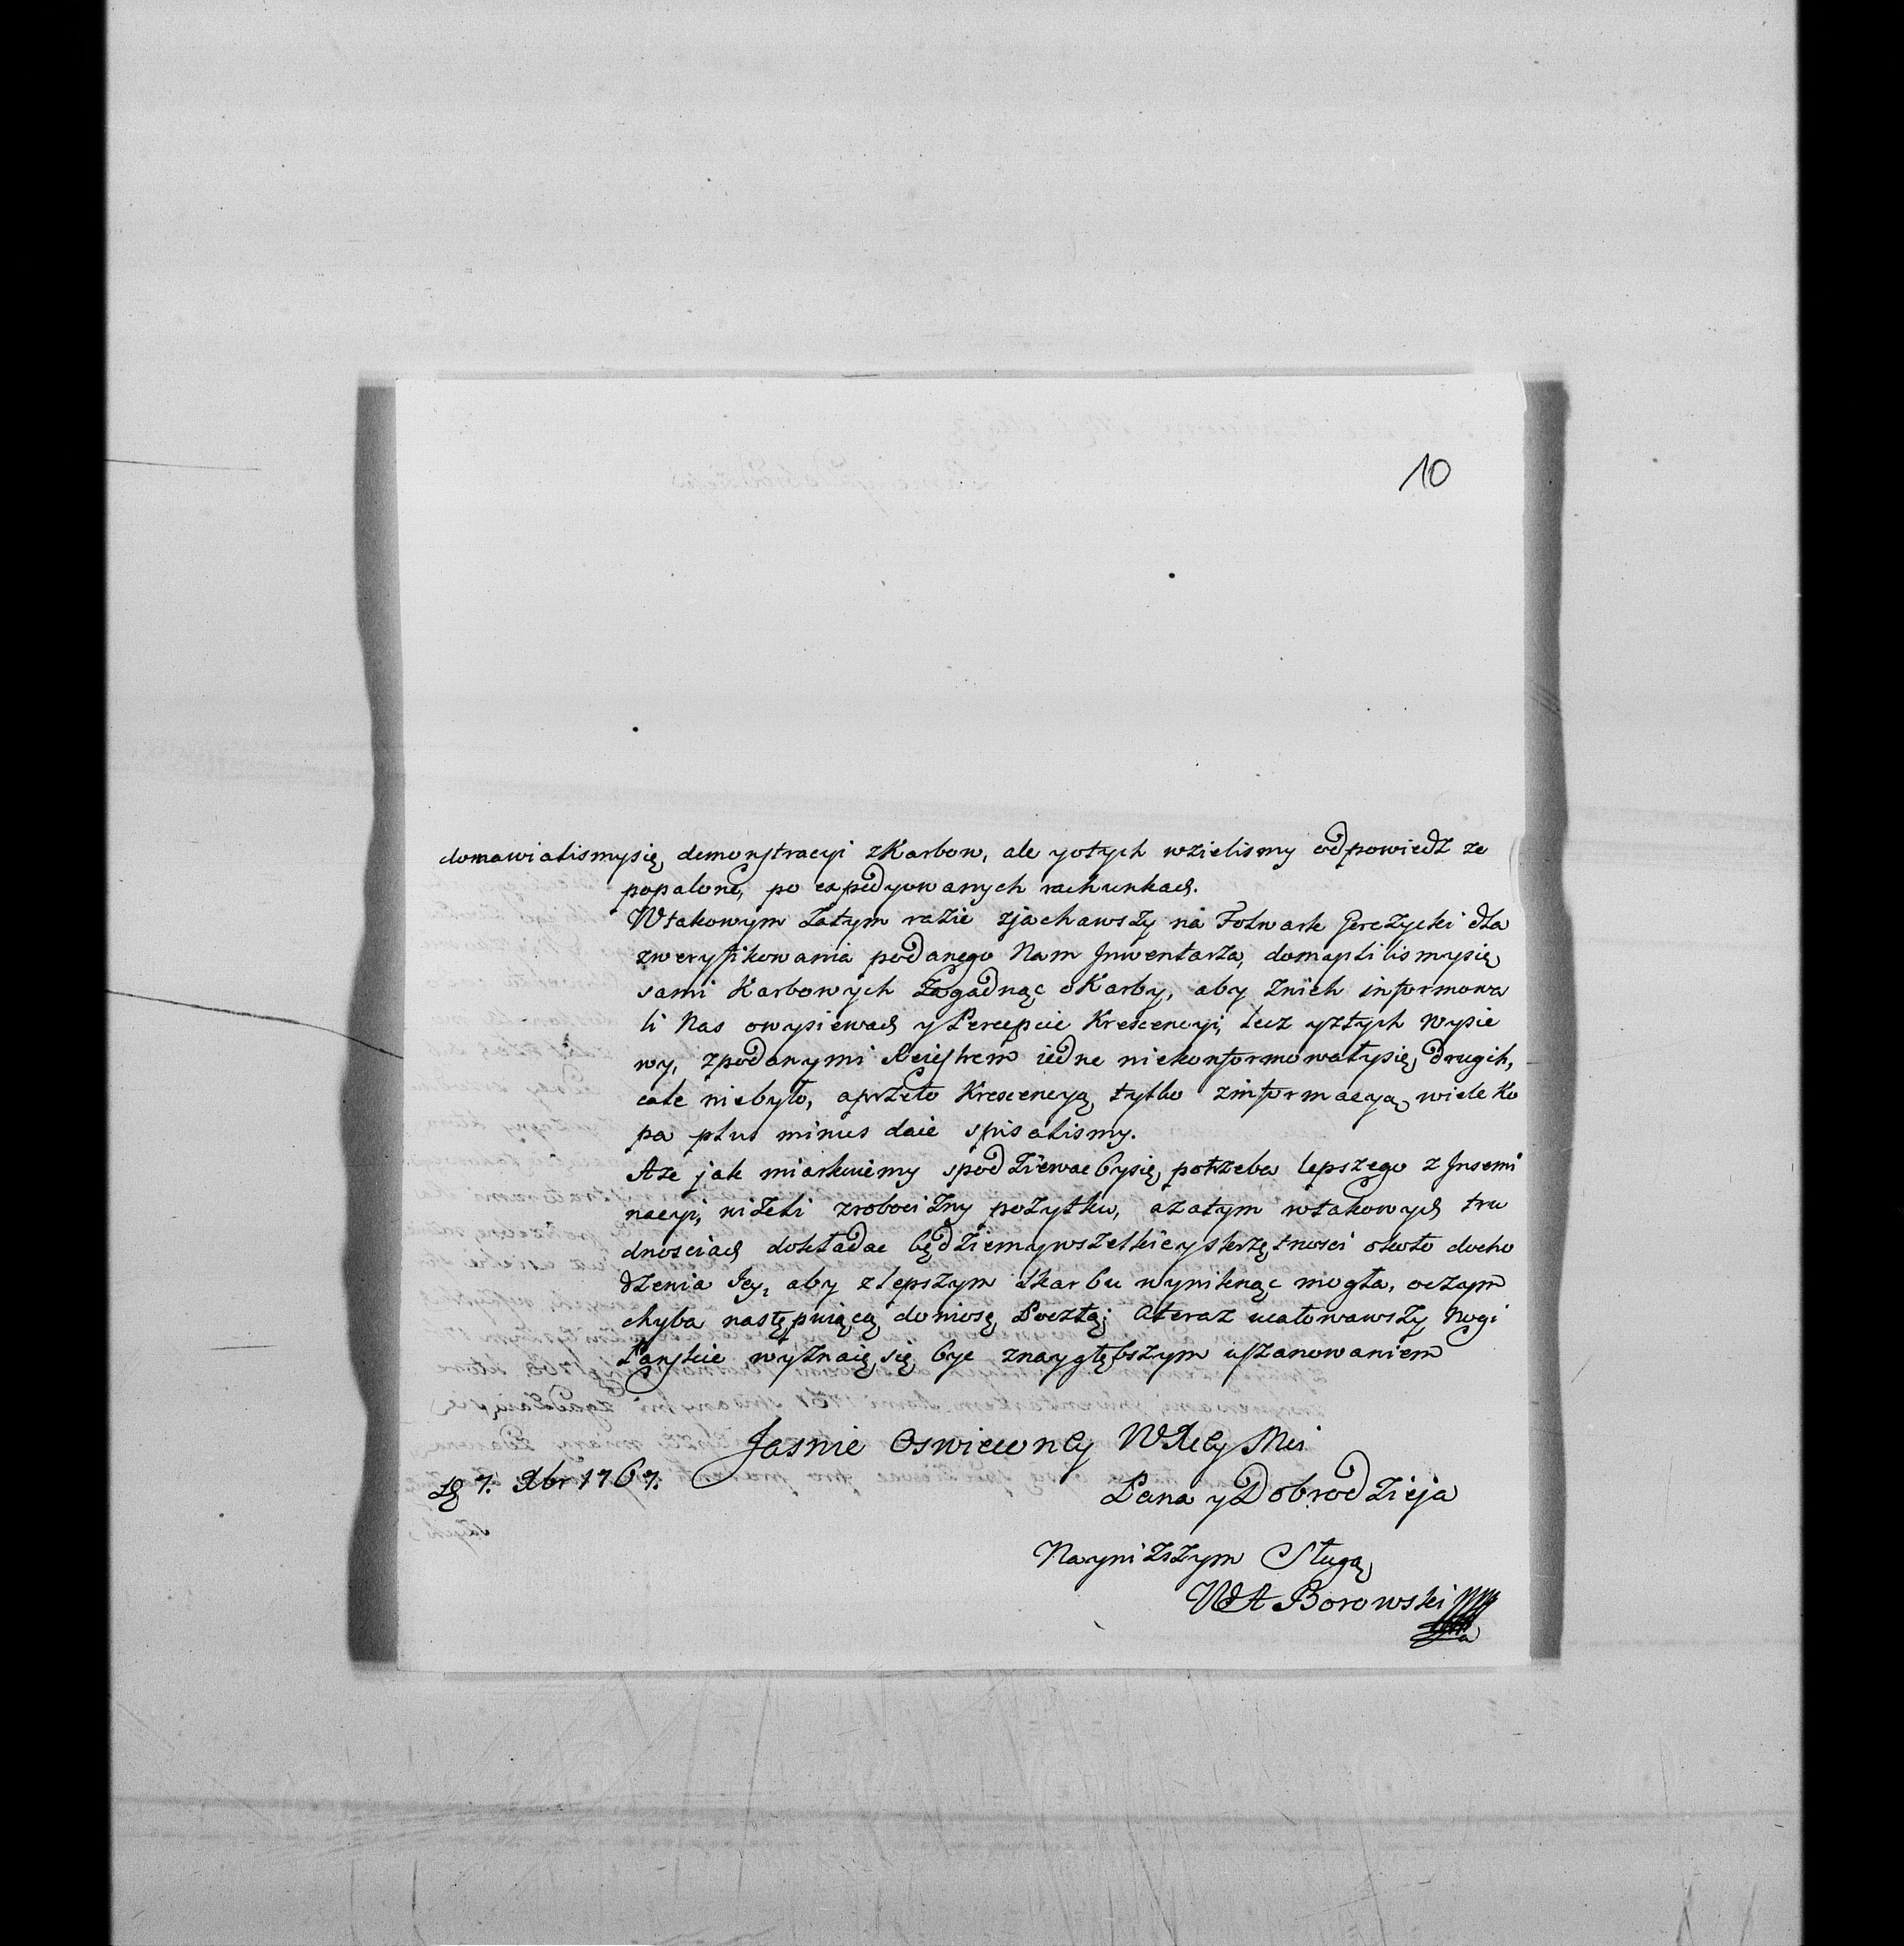 10
domawialismysię, demonstracyi zKarbow, ale yotych wzielismy odpowiedz ze
popalone, po expedyowanych rachunkach.
Wtakowym Zatym razie zjachawszy na Folwark Hereżycki dla
zweryfikowania podanego Nam Jnwentarza, domyslilismysię
sami Karbowych Zagadnąc oKarby, aby Znich informowa
li Nas owysiewach y Percepcie Krescencyi, lecz yztych wysie
wy, zpodanymi Reiestrem iedne niekonformowałysię, drugich,
cale niebyło, aprzeto Krescencyą tylko zinformacyą, wiele Ko
pa plus minus daie spisalismy.
Aże jak miarkuiemy spodziewac bysię, potrzeba lepszego z Jnsemi
nacyi, niżeli zrobocizny pożytku, azatym wtakowych tru
dnosciach dokładac będziemy wszelkiey skrzętnosci około docho
dzenia Jey, aby zlepszym skarbu wyniknąc mogła, oczym
chyba następuiącą doniosę Pocztą; Ateraz ucałowawszy Nogi
Panskie wyznaię się byc znaygłębszym uszanowaniem
Jasnie Oswieconey WXcey Mci
D 7. Xbr 1767.
Pana y Dobrodzieja
Nayniższym Sługą
WA Borowski